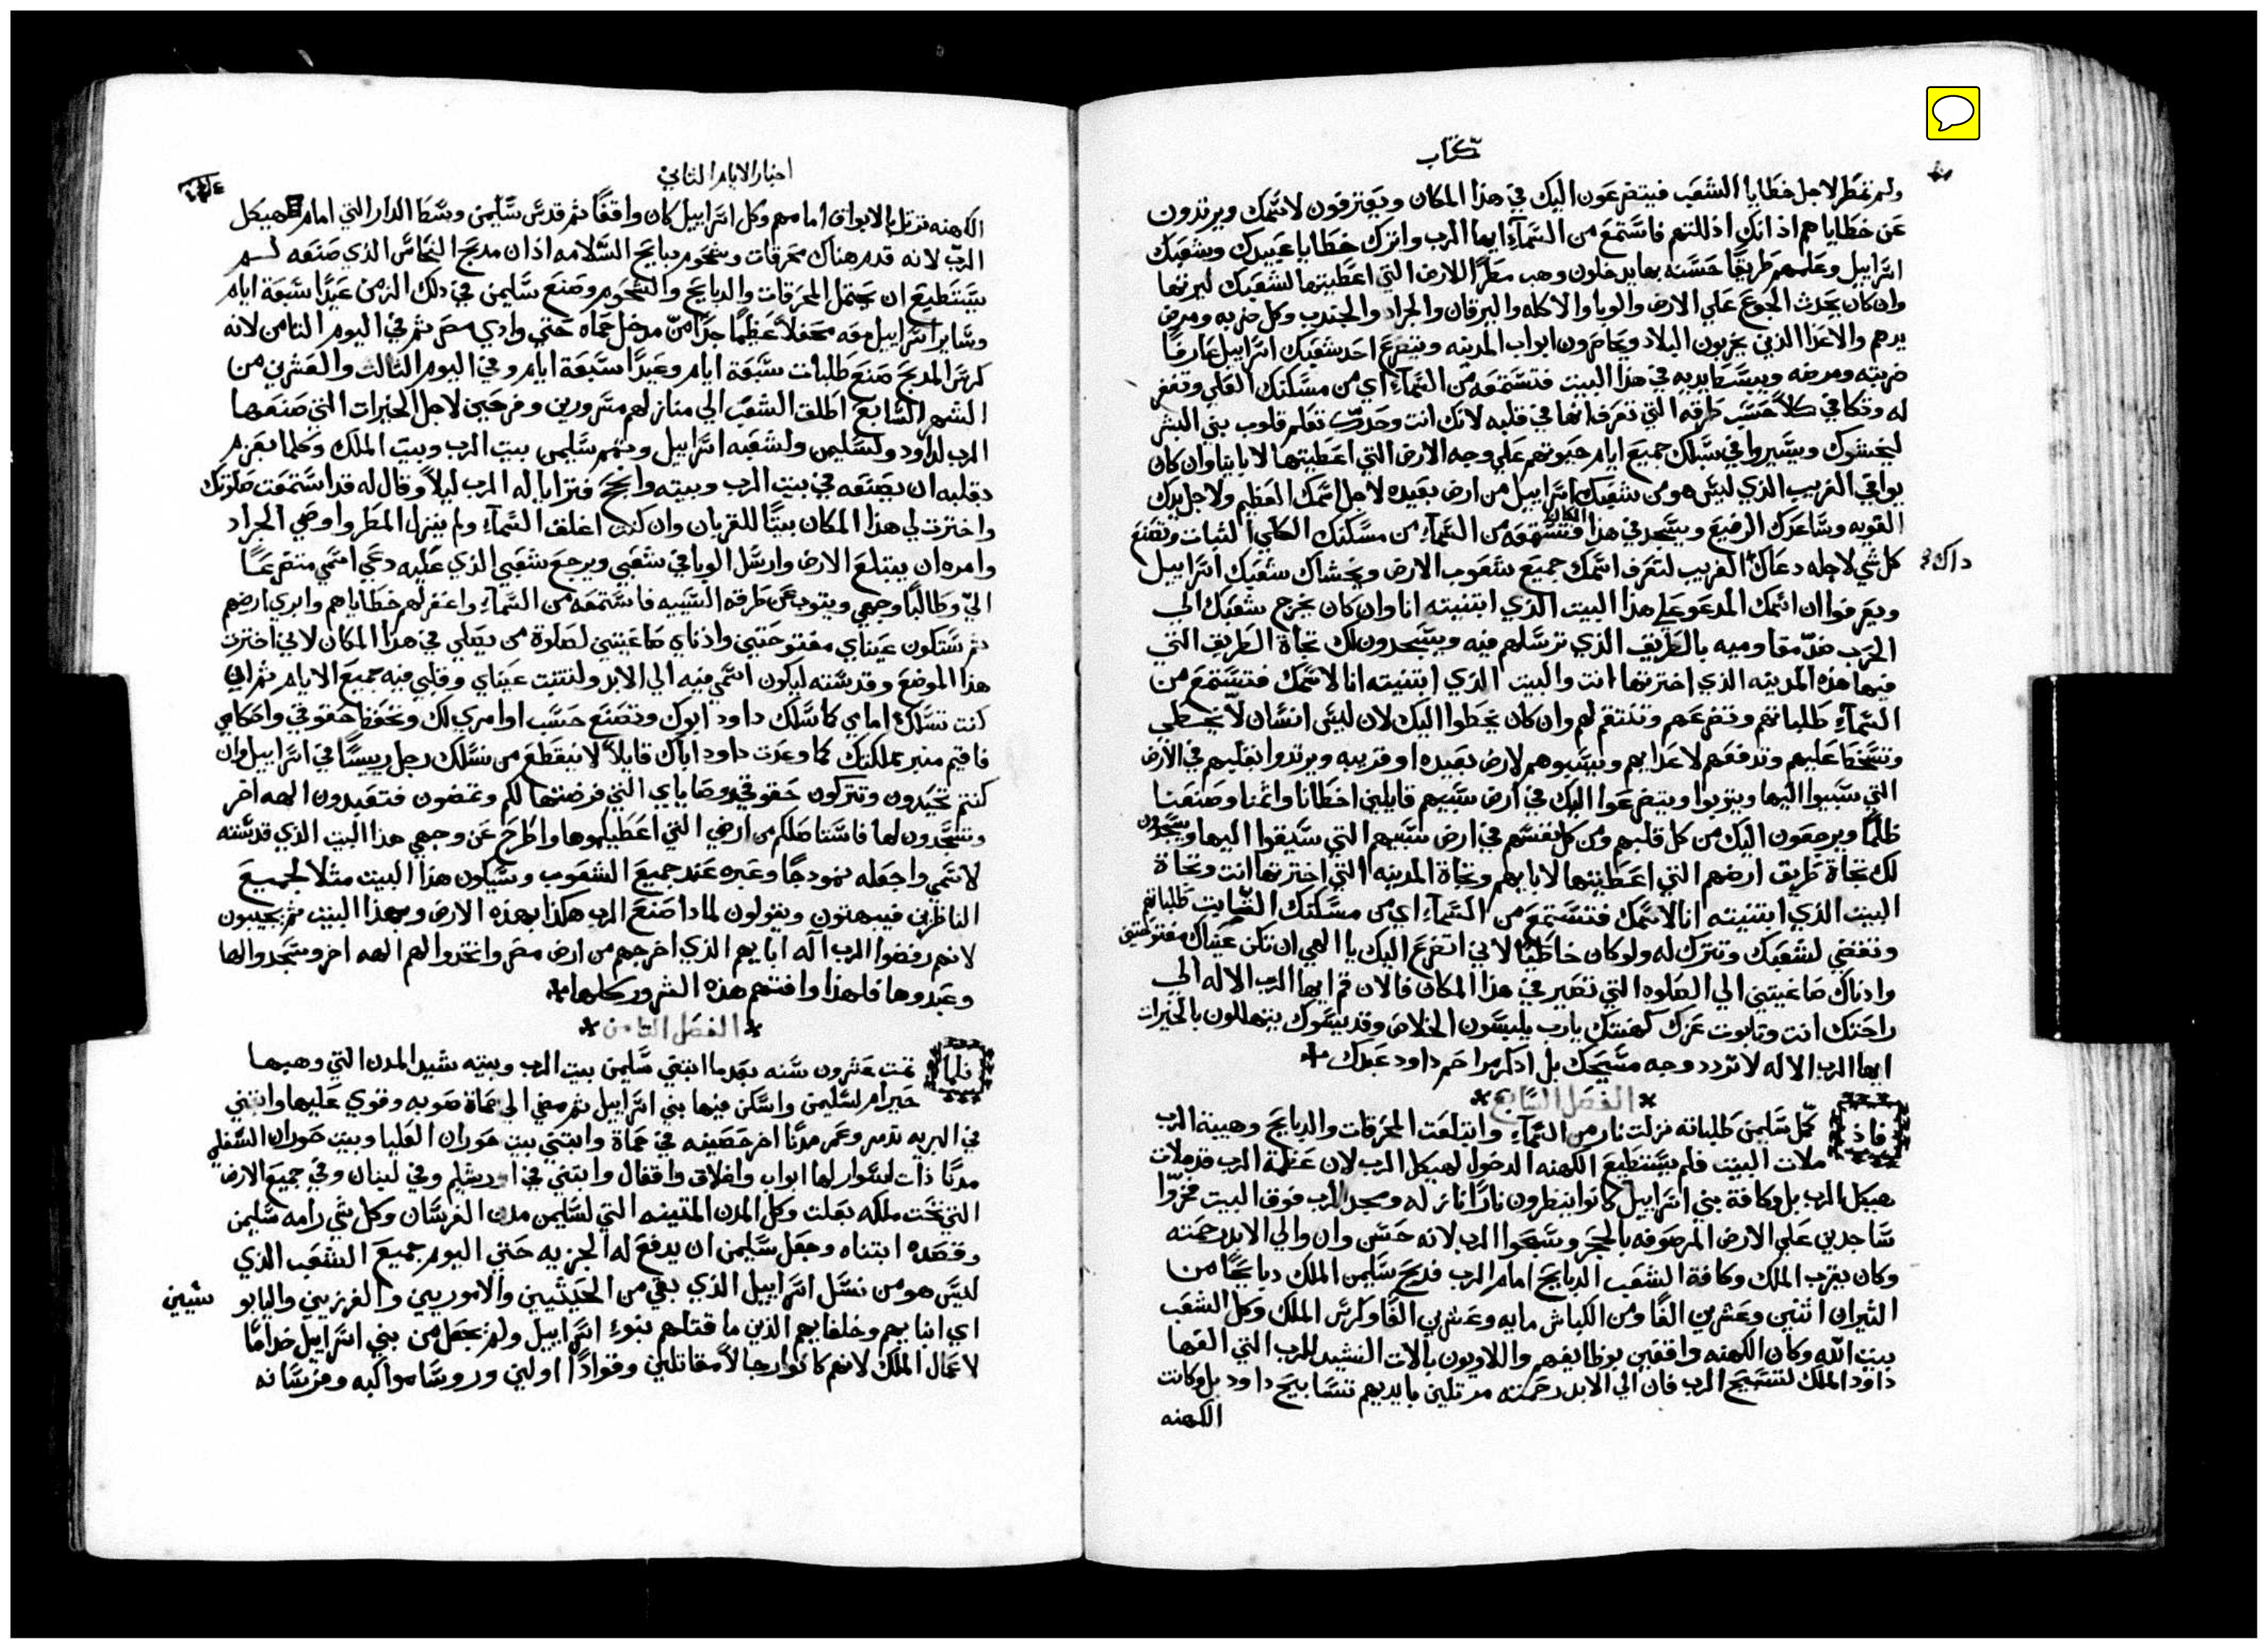 كتاب
ولم تمطر لاجل خطايا الشعب فيتضرعون اليك في هذا المكان ويعترفون لاسمك ويرتدون
عن خطاياهم اذ انك اذللتهم فاستمع من السمآءِ ايها الرب واترك خطايا عبيدك وشعبك
اسراييل وعلمهم طريقًا حسنه بها يدخلون وهب مطرًا للارض التي اعطيتها لشعبك ليرثها
وان كان يحدث الجوع علي الارض والوبا والاكله واليرقان والجراد والجندب وكل ضربه ومرض
يرهم والاعدا الذين يخربون البلاد ويحاصرون ابواب المدينه ويتضرع احد شعبك اسراييل عارفًا
ضربته ومرضه ويبسط يديه في هذا البيت فتستمعه من السمآءِ اي من مسكنك العلي وتغفر
له وتكافي كلاً حسب طرقه التي تعرف انها في قلبه لانك انت وحدك تعلم قلوب بني البشر
ليخشوك ويسيروا في سبلك جميع ايام حيوتهم علي وجه الارض التي اعطيتها لاباينا وان كان
يوافي الغريب الذي ليس هو من شعبك اسراييل من ارض بعيده لاجل اسمك العظيم ولاجل يدك
القويه وساعدك الرفيع ويسجد في هذا المكان فتستمعه من السمآءِ من مسكنك الكلي الثبات وتصنع
كل شي لاجله دعاك الغريب لتعرف اسمك جميع شعوب الارض ويخشاك شعبك اسراييل
داك
ويعرفوا ان اسمك المدعو علي هذا البيت الذي ابتنيته انا وان كان يخرج شعبك الي
الحرب ضد مقاوميه بالطريق الذي ترسلهم فيه ويسجدون لك تجاة الطريق التي
فيها هذه المدينه الذي اخترتها انت والبيت الذي ابتنيته انا لاسمك فتستمع من
السمآءِ طلباتهم وتضرعهم وتنتقم لهم وان كان يخطوا اليك لان ليس انسان لا يخطي
وتسخط عليهم وتدفعهم لاعدايهم ويسبوهم لارض بعيده او قريبه ويرتدوا بقلبهم في الارض
التي سبيوا اليها ويتوبوا ويتضرعوا اليك في ارض سبيهم قايلين اخطانا واثمنا وصنعنا
ظلمًا ويرجعون اليك من كل قلبهم ومن كل نفسهم في ارض سبيهم التي سيقوا اليها ويسجدون
لك تجاة طريق ارضهم التي اعطيتها لابايهم وتجاة المدينه التي اخترتها انت وتجاة
البيت الذي ابتنيته انا لاسمك فتستمع من السمآءِ اي من مسكنك الثابت طلباتهم
وتقضي لشعبك وتترك له ولو كان خاطيًا لاني اتضرع اليك يا الهي ان تكن عيناك مفتوحتين
واذناك صاغيتين الي الصلوه التي تصير في هذا المكان فالان قم ايها الرب الاله الي
راحتك انت وتابوت عزك كهنتك يارب يلبسون الخلاص وقديسوك يتهللون بالخيرات
ايها الرب الاله لا تردد وجه مسيحك بل اذكر مراحم داود عبدك
* الفصل السابع *
فاذ كمّل سليمن طلباته نزلت نار من السمآءِ وابتلعت المحرقات والدبايح وهيبة الرب
ملات البيت فلم يستطيع الكهنه الدخول لهيكل الرب لان عظمة الرب قد ملات
هيكل الرب بل وكافة بني اسراييل كانوا ينظرون نارًا نازله ومجد الرب فوق البيت فخرّوا
ساجدين علي الارض المرصوفه بالحجر وسبحوا الرب لانه حسن وان والي الابد رحمته
وكان يقرب الملك وكافة الشعب الدبايح امام الرب فدبح سليمن الملك دبايحًا من
الثيران اثنين وعشرين الفًا ومن الكباش مايه وعشرين الفًا وكرس الملك وكل الشعب
بيت الله وكان الكهنه واقفين بوظايفهم واللاويون بالات النشيد للرب التي الفها
داود الملك لتسبيح الرب فان الي الابد رحمته مرتلين بايديهم تسابيح داود بل وكانت
الكهنه
اخبار الايام الثاني
الكهنه ترتل بالابواق امامهم وكل اسراييل كان واقفًا ثم قدس سليمن وسط الدار التي امام هيكل
الرب لانه قدم هناك محرقات وشحوم دبايح السلامه اذ ان مدبح النحاس الذي صنعه لم
يستطيع ان يحتمل المحرقات والدبايح والشحوم وصنع سليمن في ذلك الزمن عيدًا سبعة ايام
وساير اسراييل معه محفلاً عظيمًا جدًا من مدخل حماه حتي وادي مصر ثم في اليوم الثامن لانه
كرس المدبح صنع طلبات سبعة ايام وعيدًا سبعة ايام وفي اليوم الثالث والعشرين من
الشهر السابع اطلق الشعب الي منازلهم مسرورين وفرحين لاجل الخيرات التي صنعها
الرب لداود ولسليمن ولشعبه اسراييل وتمم سليمن بيت الرب وبيت الملك وكلما بعزم
بقلبه ان يصنعه في بيت الرب وبيته وانجح فترايا له الرب ليلاً وقال له قد استمعت صلوتك
واخترت لي هذا المكان بيتًا للقربان وان كنت اغلق السمآءِ ولم ينزل المطر واوصي الجراد
وامره ان يبتلع الارض وارسل الوبا في شعبي ويرجع شعبي الذي عليه دعي اسمي متضرعًا
اليّ وطالبًا وجهي ويتوب عن طرقه السيه فاستمعه من السمآءِ واغفر لهم خطاياهم وابري ارضهم
ثم ستكون عيناي مفتوحتين واذناي صاغيتين لصلوة من يصلي في هذا المكان لاني اخترت
هذا الموضع وقدسته ليكون اسمي فيه الي الابد ولتثبت عيناي وقلبي فيه جميع الايام ثم ان
كنت تسلك امامي كما سلك داود ابوك وتصنع حسب اوامري لك وتحفظ حقوقي واحكامي
فاقيم منبر مملكتك كما وعدت داود اباك قايلاً لا ينقطع من نسلك رجل رييسًا في اسراييل وان
كنتم تحيدون وتتركون حقوقي ووصاياي التي فرضتها لكم وتمضون فتعبدون الهه اخر
وتسجدون لها فاستاصلكم من ارضي التي اعطيتكموها واطرح عن وجهي هذا البيت الذي قدسته
لاسمي واجعله نمودجًا وعبره عند جميع الشعوب وسيكون هذا البيت مثلاً لجميع
الناظرين فيبهتون ويقولون لمادا صنع الرب هكذا بهذه الارض وبهذا البيت ثم يجيبون
لانهم رفضوا الرب اله ابايهم الذي اخرجهم من ارض مصر واتخدوا لهم الهه اخر وسجدوا لها
وعبدوها فلهذا وافتهم هذه الشرور كلها
* الفصل الثامن *
فلما تمت عشرون سنه بعدما ابتني سليمن بيت الرب وبيته شيد المدن التي وهبها
حيرام لسليمن واسكن فيها بني اسراييل ثم مضي الي حماة صوبه وقوي عليها وابتني
في البريه تدمر وعمر مدنًا اخر حصينه في حماة وابتني بيت حوران العليا وبيت حوران السفلي
مدنًا ذات اسوار لها ابواب واغلاق واقفال وابتني في اورشليم وفي لبنان وفي جميع الارض
التي تحت ملكه بعلت وكل المدن المتينه التي لسليمن مدن الفرسان وكل شي رامه سليمن
وقصده ابتناه وجعل سليمن ان يدفع له الجزيه حتي اليوم جميع الشعب الذي
ليس هو من نسل اسراييل الذي بقي من الحيثيين والاموريين والفرزيين واليابو
سيين
اي ابنايهم وخلفايهم الذين ما قتلهم بنوء اسراييل ولم يجعل من بني اسراييل خدامًا
لاعمال الملك لانهم كانوا رجالاً مقاتلين وقوادًا اولين وروسا مواكبه وفرسانه